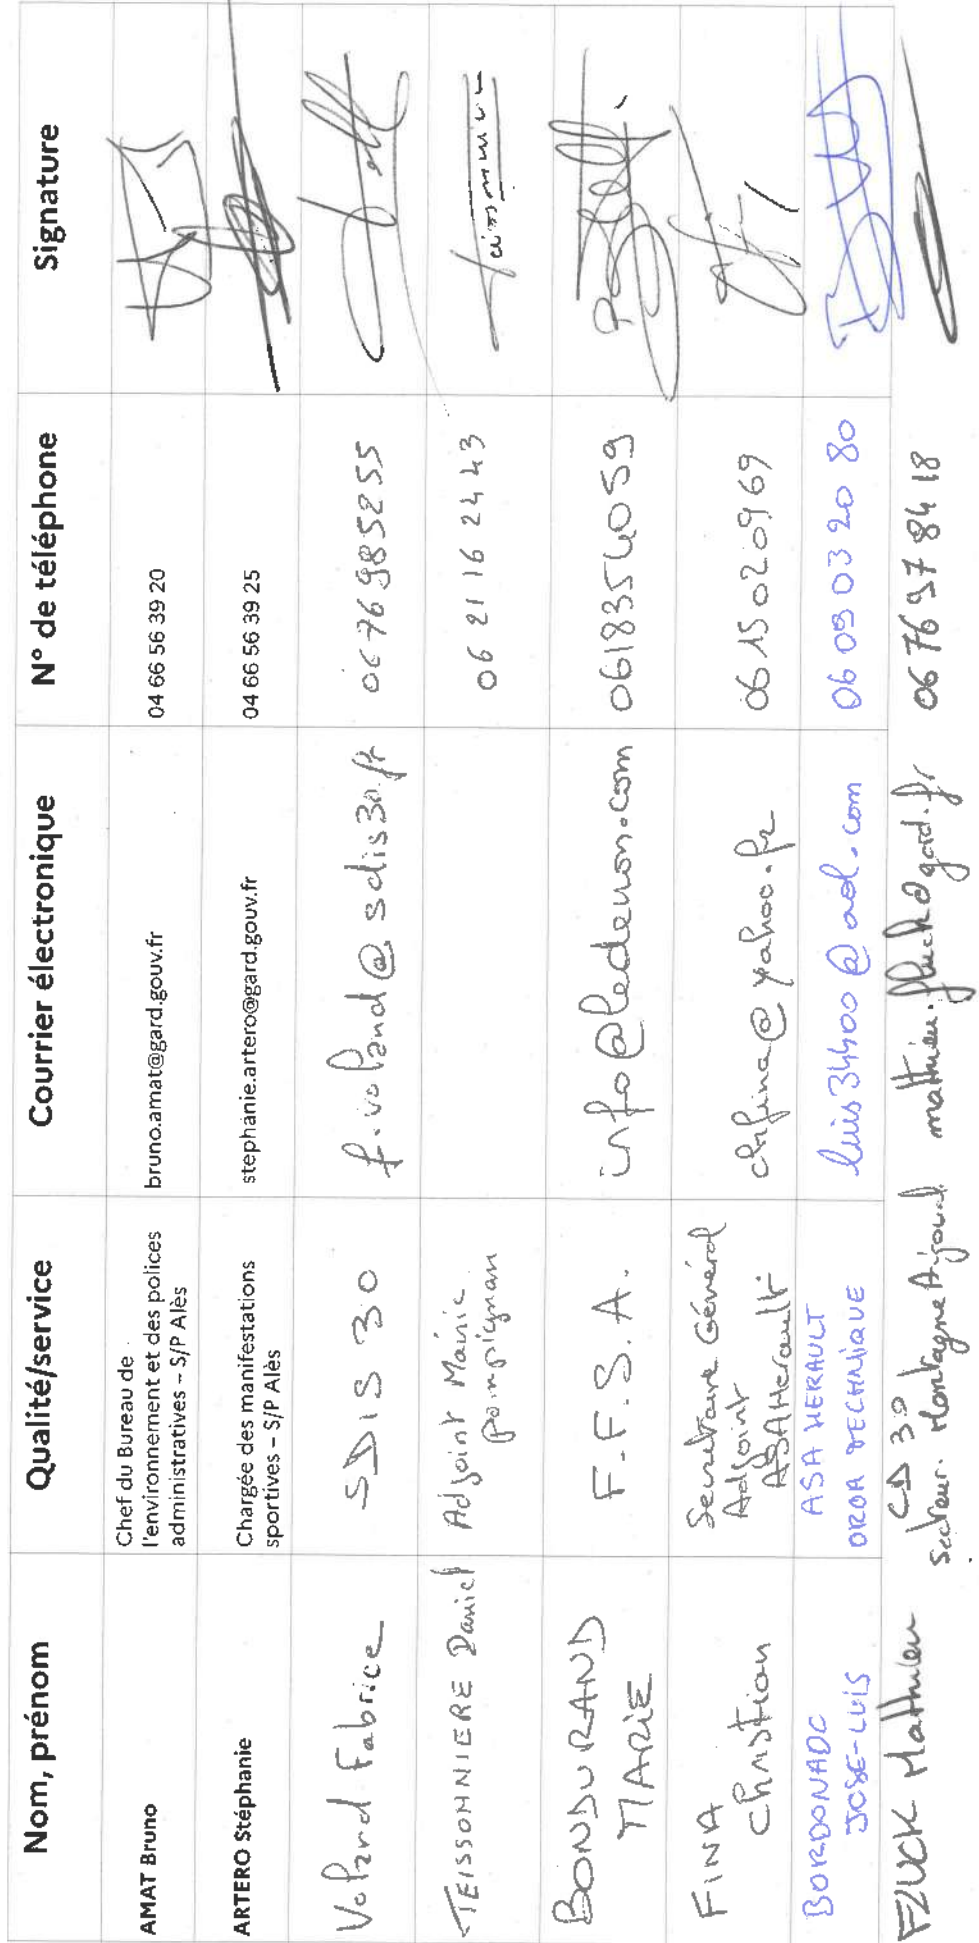 Nom, prénom
Qualité/service
Courrier électronique
N° de téléphone
Signature
AMAT Bruno
Chef du Bureau de
l'environnement et des polices
administratives – S/P Alès
bruno.amat@gard.gouv.fr
04 66 56 39 20
ARTERO Stéphanie
Chargée des manifestations
sportives – S/P Alès
stephanie.artero@gard.gouv.fr
04 66 56 39 25
Voland Fabrice
SDIS 30
f.voland@sdis30.fr
0676985255
TEISSONNIERE Daniel
Adjoint Mairie
pompignan
06 21 16 24 43
BONDURAND
MARIE
F.F.S.A.
info@ledenon.com
0618354059
FINA
Christian
Secretaire Général
Adjoint
ASAHerault
chfina@yahoo.fr
0615020969
BORDONADO
JOSE-LUIS
ASA HERAULT
ORGA TECHNIQUE
luis34400@aol.com
06 09 03 20 80
Mathieu
CD 30
secteur Montagne Aigoual
06 76 97 84 18